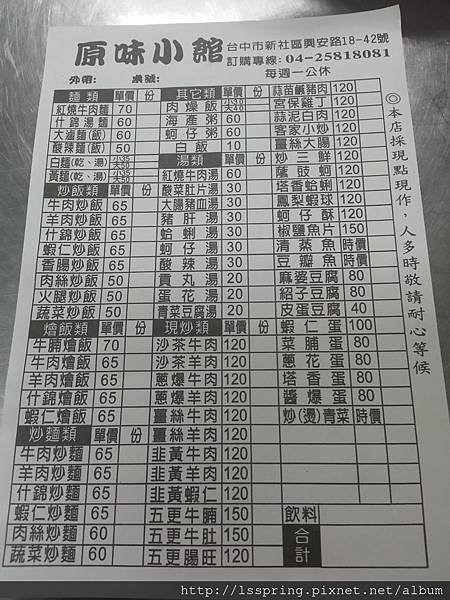 原味小館
台中市新社區興安路18-42號
訂購專線: 04-25818081
外帶: 桌號: 每週一公休
麵類 單價 份
紅燒牛肉麵 70
什錦湯麵 60
大滷麵(飯) 60
酸辣麵(飯) 50
白麵(乾、湯) 小35 大50
黃麵(乾、湯) 小35 大50
炒飯類 單價 份
牛肉炒飯 65
羊肉炒飯 65
什錦炒飯 65
蝦仁炒飯 65
香腸炒飯 65
肉絲炒飯 50
火腿炒飯 50
蔬菜炒飯 50
燴飯類 單價 份
牛腩燴飯 70
牛肉燴飯 65
羊肉燴飯 65
什錦燴飯 65
蝦仁燴飯 65
炒麵類 單價 份
牛肉炒麵 65
羊肉炒麵 65
什錦炒麵 65
蝦仁炒麵 65
肉絲炒麵 60
蔬菜炒麵 60
其它類 單價 份
肉燥飯
海產粥 60
蚵仔粥 60
白飯 10
湯類 單價 份
紅燒牛肉湯 60
酸菜肚片湯 30
大腸豬血湯 30
豬肝湯 30
蛤蜊湯 30
蚵仔湯 30
酸辣湯 30
貢丸湯 20
蛋花湯 20
青菜豆腐湯 20
現炒類 單價 份
沙茶牛肉 120
沙茶羊肉 120
蔥爆牛肉 120
蔥爆羊肉 120
薑絲牛肉 120
薑絲羊肉 120
韭黃牛肉 120
韭黃羊肉 120
韭黃蝦仁 120
五更牛腩 150
五更牛肚 150
五更腸旺 120
蒜苗鹹豬肉 120
宮保雞丁 120
蒜泥白肉 120
客家小炒 120
薑絲大腸 120
炒三鮮 120
蔭豉蚵 120
塔香蛤蜊 120
鳳梨蝦球 120
蚵仔酥 120
椒鹽魚片 150
清蒸魚 時價
豆瓣魚 時價
麻婆豆腐 80
紹子豆腐 80
皮蛋豆腐 40
蝦仁蛋 100
菜脯蛋 80
蔥花蛋 80
塔香蛋 80
醬爆蛋 80
炒(燙)青菜 時價
飲料
合計
◎本店採現點現作，人多時敬請耐心等候
http://lsspring.pixnet.net/album